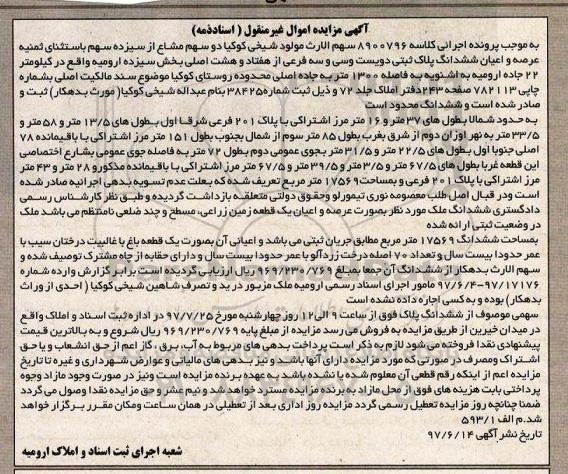 آگهی مزایده اموال غیرمنقول ( اسنادذمه)
به موجب پرونده اجرائی کلاسه ۸۹۰۰۷۹۶ سهم الارث مولود شیخی کوکیا دو سهم مشاع از سیزده سهم باستثنای ثمنیه
عرصه و اعیان ششدانگ پلاک ثبتی دویست وسی و سه فرعی از هفتاد و هشت اصلی بخش سیزده ارومیه واقع در کیلومتر
۲۲ جاده ارومیه به اشنویه به فاصله ۱۳۰۰ متر به جاده اصلی محدوده روستای کوکیا موضوع سند مالکیت اصلی بشماره
چاپی ۷۸۲۱۱۳ صفحه ۲۴۳دفتر املاک جلد ۷۲ و ذیل ثبت شماره۳۸۴۲۵ بنام عبداله شیخی کوکیا( مورث بدهکار) ثبت و
صادر شده است و ششدانگ محدود است
به حدود شمالا بطول های ۳۷ متر و ۱۶ متر مرز اشتراکی با پلاک ۲۰۱ فرعی شرقا اول بطول های ۱۳/۵ متر و ۵۸ متر و
۳۳/۵ متر به نهر اوزان دوم از شرق بغرب بطول ۸۵ متر سوم از شمال بجنوب بطول ۱۵۱ متر مرز اشتراکی با باقیمانده ۷۸
اصلی جنوبا اول بطول های ۲۲/۵ متر و ۳۱/۵ متر بجوی عمومی دوم بطول ۷۲ متر به فاصله جوی عمومی بشارع اختصاصی
این قطعه غربا بطول های ۶۷/۵ متر و ۳/۵ متر و ۳۹/۵ متر و ۶۷/۵ متر مرز اشتراکی با باقیمانده مذکور و ۲۸ متر و ۴۳ متر
مرز اشتراکی با پلاک ۲۰۱ فرعی و بمساحت۱۷۵۶۹ متر مربع تعریف شده که بعلت عدم تسویه بدهی اجرائیه صادر شده
است ودر قبال اصل طلب معصومه نوری تیمورلو وحقوق دولتی متعلقه بازداشت گردیده و طبق نظر کارشناس رسمی
دادگستری ششدانگ ملک مورد نظر بصورت عرصه و اعیان یک قطعه زمین زراعی، مسطح و چند ضلعی نامنتظم می باشد ملک
در وضعیت ثبتی ارائه شده
بمساحت ششدانگ ۱۷۵۶۹ متر مربع مطابق جریان ثبتی می باشد و اعیانی آن بصورت یک قطعه باغ با غالبیت درختان سیب با
عمر حدودا بیست سال و تعداد ۷۰ اصله درخت زردآلو با عمر حدودا بیست سال و دارای حقابه از چاه مشترک توصیف شده و
سهم الارث بدهکار از ششدانگ آن جمعا بمبلغ ۹۶۹/۲۳۰/۷۶۹ ریال ارزیابی گردیده است برابر گزارش وارده شماره
۹۷/۱۷۱۷۶-۹۷/۶/۴ مامور اجرای اسناد رسمی ارومیه ملک مزبور در ید و تصرف شاهین شیخی کوکیا ( احدی از وراث
بدهکار) بوده و به کسی اجاره داده نشده است
سهمی موصوف از ششدانگ پلاک فوق از ساعت ۹ الی ۱۲ روز چهارشنبه مورخ ۹۷/۷/۲۵ در اداره ثبت اسناد و املاک واقع
در میدان خیرین از طریق مزایده به فروش می رسد مزایده از مبلغ پایه ۹۶۹/۲۳۰/۷۶۹ ریال شروع و به بالاترین قیمت
پیشنهادی نقدا فروخته می شود لازم به ذکر است پرداخت بدهی های مربوط به آب، برق، گاز اعم از حق انشعاب و یا حق
اشتراک ومصرف در صورتی که مورد مزایده دارای آنها باشد و نیز بدهی های مالیاتی و عوارض شهرداری و غیره تا تاریخ
مزایده اعم از اینکه رقم قطعی آن معلوم شده یا نشده باشد به عهده برنده مزایده است ونیز در صورت وجود مازاد وجوه
پرداختی بابت هزینه های فوق از محل مازاد به برنده مزایده مسترد خواهد شد و نیم عشر و حق مزایده نقدا وصول می گردد
ضمنا چنانچه روز مزایده تعطیل رسمی گردد مزایده روز اداری بعد از تعطیلی در همان ساعت ومکان مقرر برگزار خواهد
شد.م الف ۵۹۳/۱
تاریخ نشر آگهی ۹۷/۶/۱۴
شعبه اجرای ثبت اسناد و املاک ارومیه